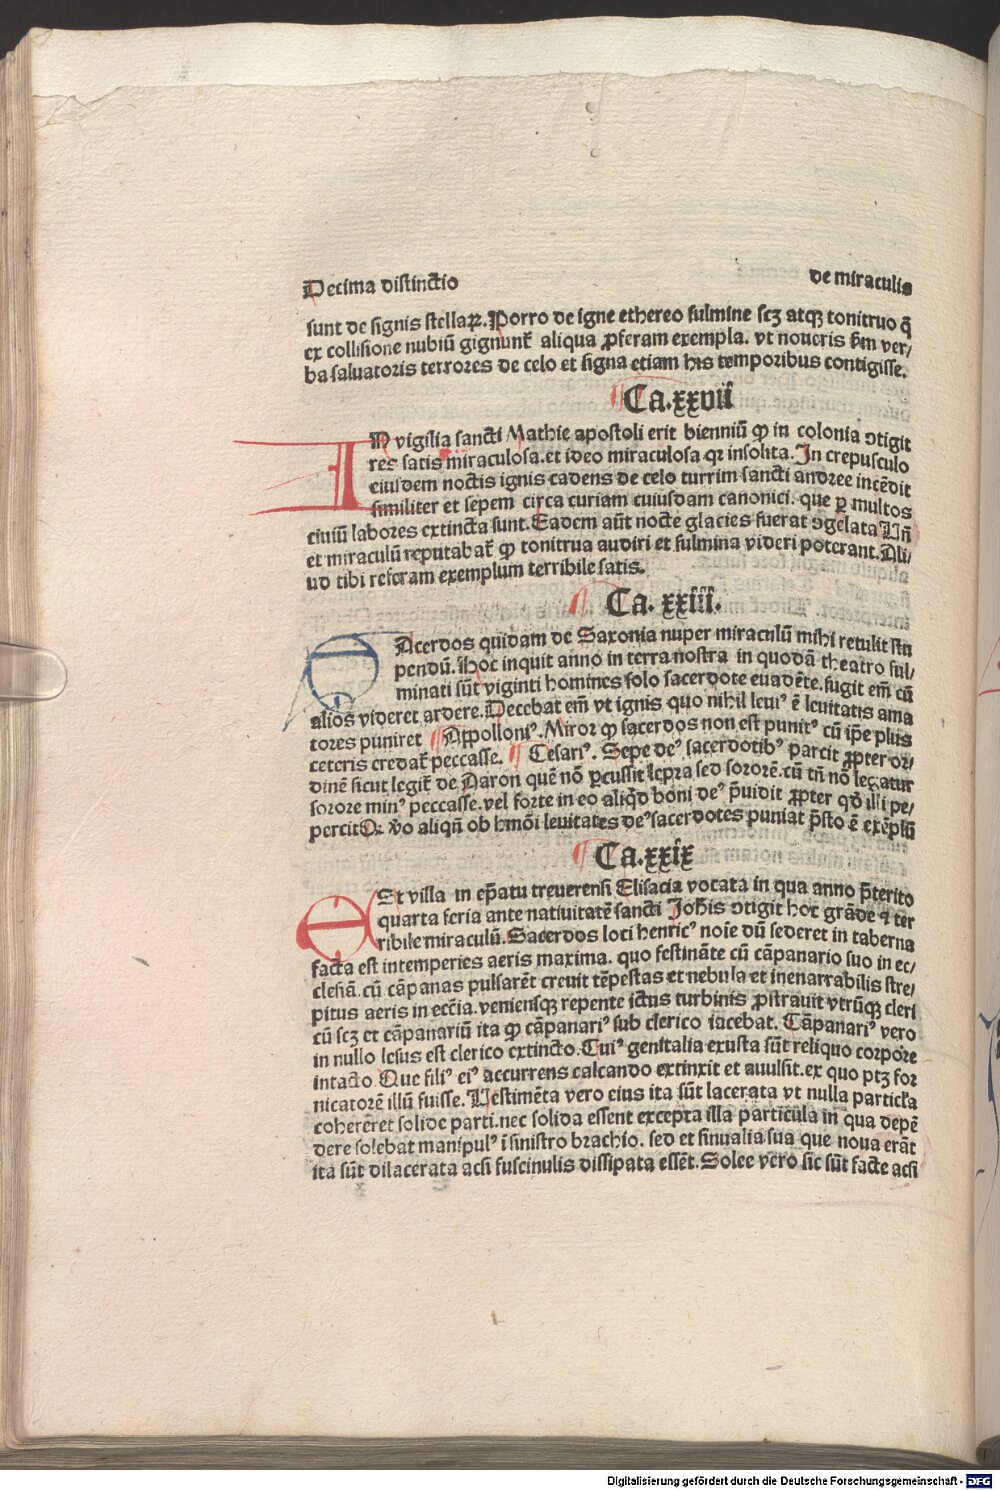 Decima distinctio de miraculis
sunt de signis stellaꝝ. Porro de igne ethereo fulmine scꝫ atqꝫ tonitruo q̄
ex collisione nubiū gignunt᷑ aliqua ꝓferam exempla. vt noueris s̄m ver/
ba saluatoris terrores de celo et signa etiam his temporibus contigisse.
¶ Ca.xxvii
IN vigilia sancti Mathie apostoli erit bienniū ꝙ in colonia ↄtigit
res satis miraculosa.et ideo miraculosa qꝛ insolita. In crepusculo
eiusdem noctis ignis cadens de celo turrim sancti andree incēdit
similiter et sepem circa curiam cuiusdam canonici. que ꝑ multos
ciuiū labores extincta sunt. Eadem aūt nocte glacies fuerat ↄgelata Uñ
et miraculū reputabat᷑ ꝙ tonitrua audiri et fulmina videri poterant. Ali/
ud tibi referam exemplum terribile satis.
¶ Ca. xxiii.
SAcerdos quidam de Saxonia nuper miraculū mihi retulit stu
pendū. Hoc inquit anno in terra nostra in quodā theatro ful/
minati sūt viginti homines solo sacerdote euadēte. fugit em̄ cū
alios videret ardere. Decebat em̄ vt ignis quo nihil leuiꝰ ē leuitatis ama
tores puniret ¶ Appolloniꝰ. Miror ꝙ sacerdos non est punitꝰ cū ip̄e plus
ceteris credat᷑ peccasse. ¶ Cesariꝰ. Sepe deꝰ sacerdotibꝰ parcit ꝓpter or/
dinē sicut legit᷑ de Aaron quē nō ꝑcussit lepra sed sororē. cū tn̄ nō legatur
sorore minꝰ peccasse. vel forte in eo aliqd̄ boni deꝰ p̄uidit ꝓpter qd̄ illi pe/
percit Qꝛ v̄o aliqn̄ ob hmōi leuitates deꝰ sacerdotes puniat p̄sto ē exēplū
¶ Ca.xxix
ESt villa in ep̄atu treuerensi Elisacia vocata in qua anno p̄terito
quarta feria ante natiuitatē sancti Joh̄is ↄtigit hoc grāde ⁊ ter
ribile miraculū. Sacerdos loci henricꝰ noīe dū sederet in taberna
facta est intemperies aeris maxima. quo festināte cū cāpanario suo in ec/
clesiā. cū cāpanas pulsarēt creuit tēpestas et nebula et inenarrabilis stre/
pitus aeris in ecc̄ia. veniensqꝫ repente ictus turbinis ꝓstrauit vtrūqꝫ cleri
cū scꝫ et cāpanariū ita ꝙ cāpanariꝰ sub clerico iacebat. Cāpanariꝰ vero
in nullo lesus est clerico extincto. Cuiꝰ genitalia exusta sūt reliquo corpore
intacto. Que filiꝰ eiꝰ accurrens calcando extinxit et auulsit. ex quo ptꝫ for
nicatorē illū fuisse. Uestimēta vero eius ita sūt lacerata vt nulla particl̄a
cohereret solide parti. nec solida essent excepta illa particula in qua depē
dere solebat manipulꝰ ī sinistro brachio. sed et sinualia sua que noua erāt
ita sūt dilacerata acsi fuscinulis dissipata essēt. Solee vero sic sūt facte acsi
Digitalisierung gefördert durch die Deutsche Forschungsgemeinschaft - DFG